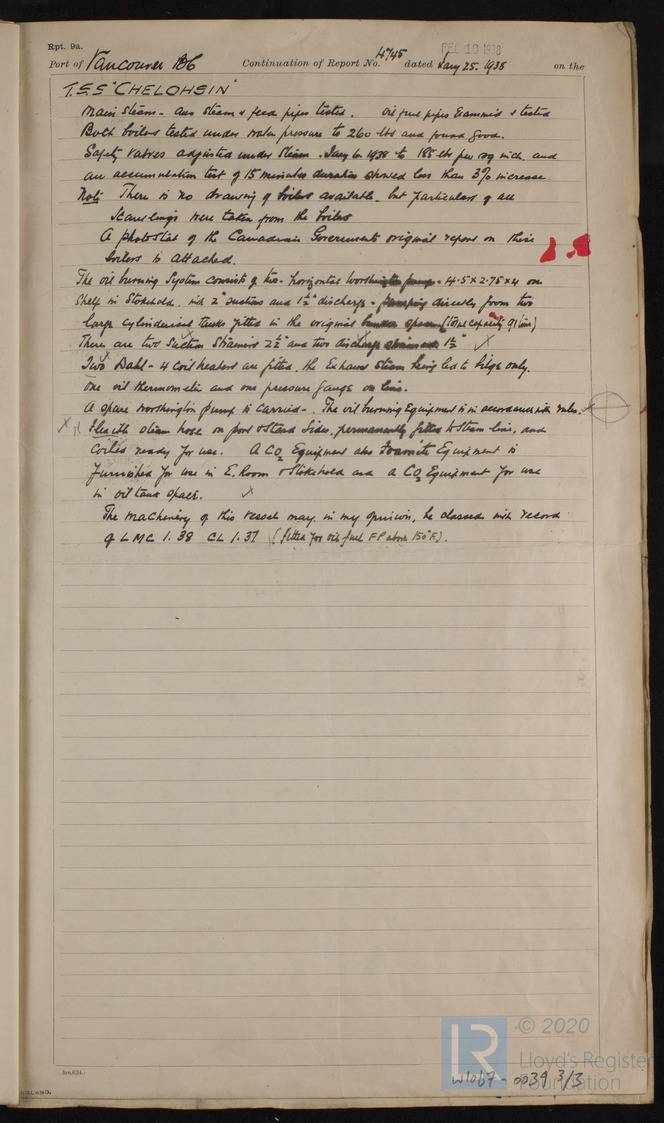 Rpt. 9a.
FEB 18 1938
Port of Vancouver BC Continuation of Report No. 4745 dated Jany 25. 1938 on the
T.S.S "CHELOHSIN"
Main Steam - Aux Steam & feed pipes tested. Oil fuel pipes Examined & tested
Both boilers tested under water pressure to 260 lbs and found good.
Safety Valves adjusted under Steam. Jany 6. 1938 to 185 lbs per sq inch and
an accumulation test of 15 minutes duration showed less than 3% increase.
Note There is no drawing of boilers available, but particulars of all
Scantlings were taken from the boilers
A photostat of the Canadian Governments original report on these
boilers is attached.
The oil burning System consists of two horizontal Worthington pumps - 4.5 x 2.75 x 4 on
Shelf in Stokehold. with 2" suctions and 1½" discharge - pumping directly from two
large cylindrical tanks fitted in the original bunker space (total capacity 91 tons)
There are two Suction Strainers 2½" and two discharge strainers 1½"
Two Dahl - 4 coil heaters are fitted. the Exhaust Steam being led to bilge only.
One oil thermometer and one pressure gauge on line.
A spare Worthington pump is carried -. The oil burning Equipment is in accordance with rules.
steam hose on port & Stand Sides, permanently fitted to Steam line, and
coiled ready for use. A CO2 Equipment also Foamite Equipment is
furnished for use in E. Room & Stokehold and a CO2 Equipment for use
in oil tank space.
The machinery of this vessel may, in my opinion, be classed with record
of LMC 1.38 CL 1.37 (fitted for oil fuel FP above 150°F).
© 2020
LR
Lloyd's Register
Foundation
W1067 - 0039 3/3